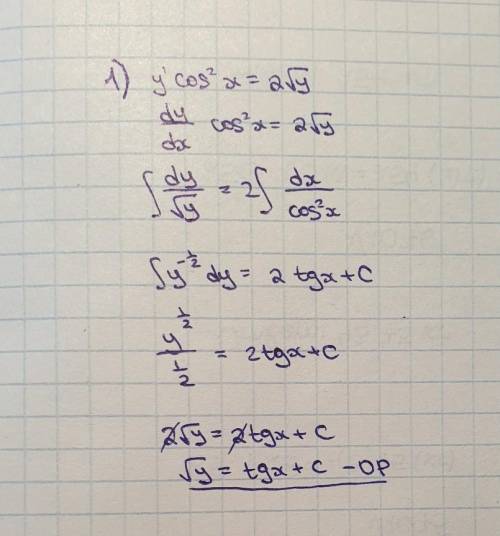 1) y' cos² x = 2√y
dy/dx cos²x = 2√y
∫ dy/√y = 2∫ dx/cos²x
∫ y^(-1/2) dy = 2 tgx + C
y^(1/2) / (1/2) = 2tgx + C
2√y = 2tgx + C
√y = tgx + C - OP